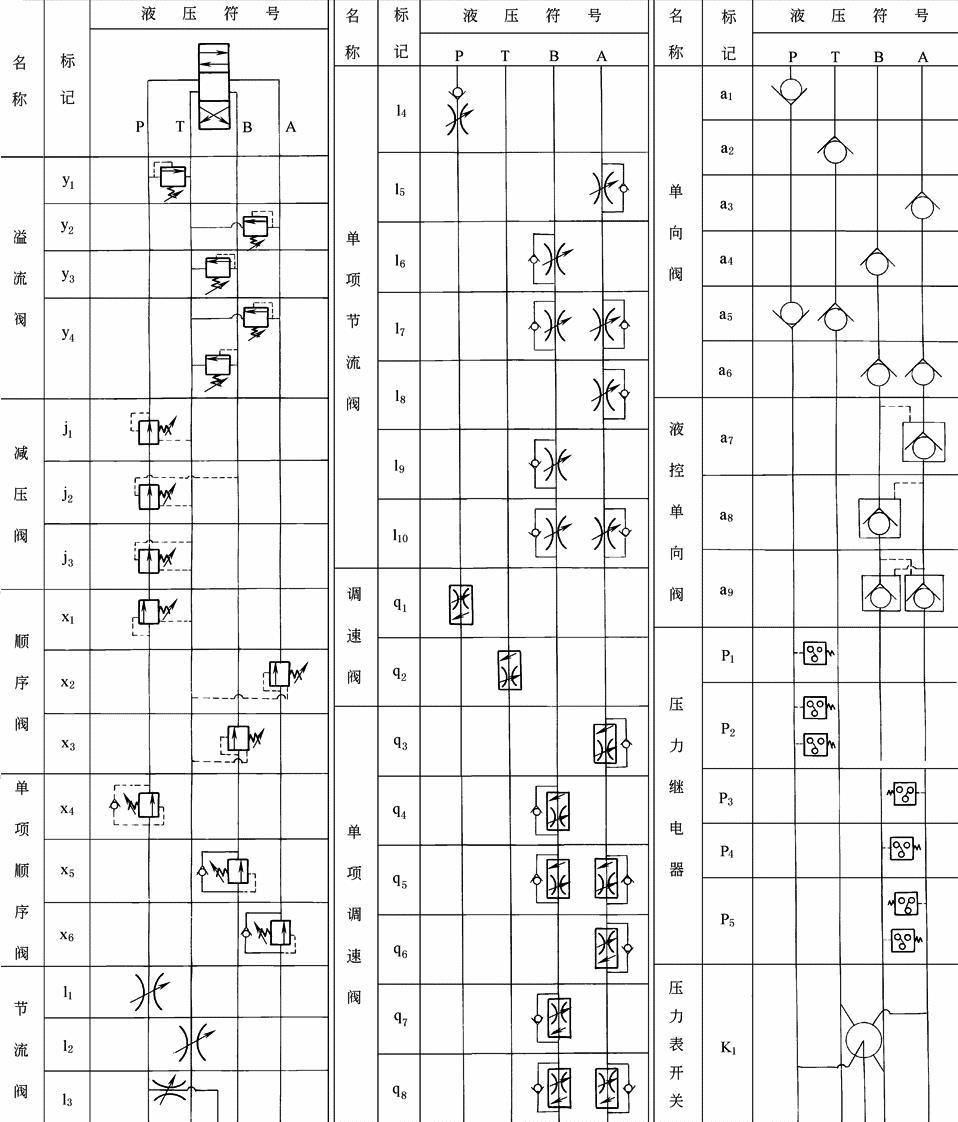 名称 标记 液压符号
P T B A
溢流阀
y1
y2
y3
y4
减压阀
j1
j2
j3
顺序阀
x1
x2
x3
单项顺序阀
x4
x5
x6
节流阀
l1
l2
l3
名称 标记 液压符号
P T B A
单项节流阀
l4
l5
l6
l7
l8
l9
l10
调速阀
q1
q2
单项调速阀
q3
q4
q5
q6
q7
q8
名称 标记 液压符号
P T B A
单向阀
a1
a2
a3
a4
a5
a6
液控单向阀
a7
a8
a9
压力继电器
P1
P2
P3
P4
P5
压力表开关
K1